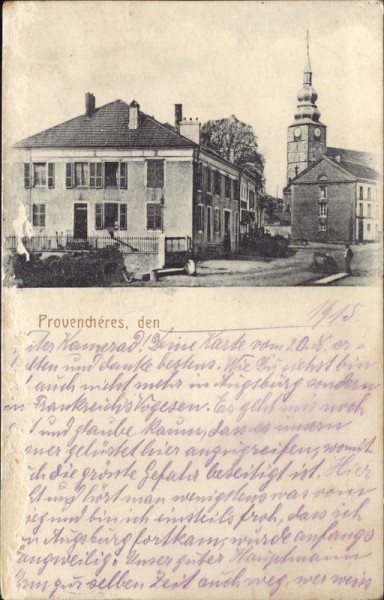 Provenchères, den
1915
ter Kamerad! Deine Karte vom 20.8. er-
lten und danke bestens. Wie Du siehst bin
auch nicht mehr in Augsburg sondern
Frankreichs Vogesen. Es geht mir noch
t und glaube kaum, dass es unsern
ner gelüstet hier anzugreifen, womit
ch die grösste Gefahr beseitigt ist. Hier
ht und hört man wenigstens was vom
ieg und bin ich einsteils froh, dass ich
n Augsburg fortkam, wurde anfangs
angweilig. Unser guter Hauptmann
zur selben Zeit auch weg, wer weiss